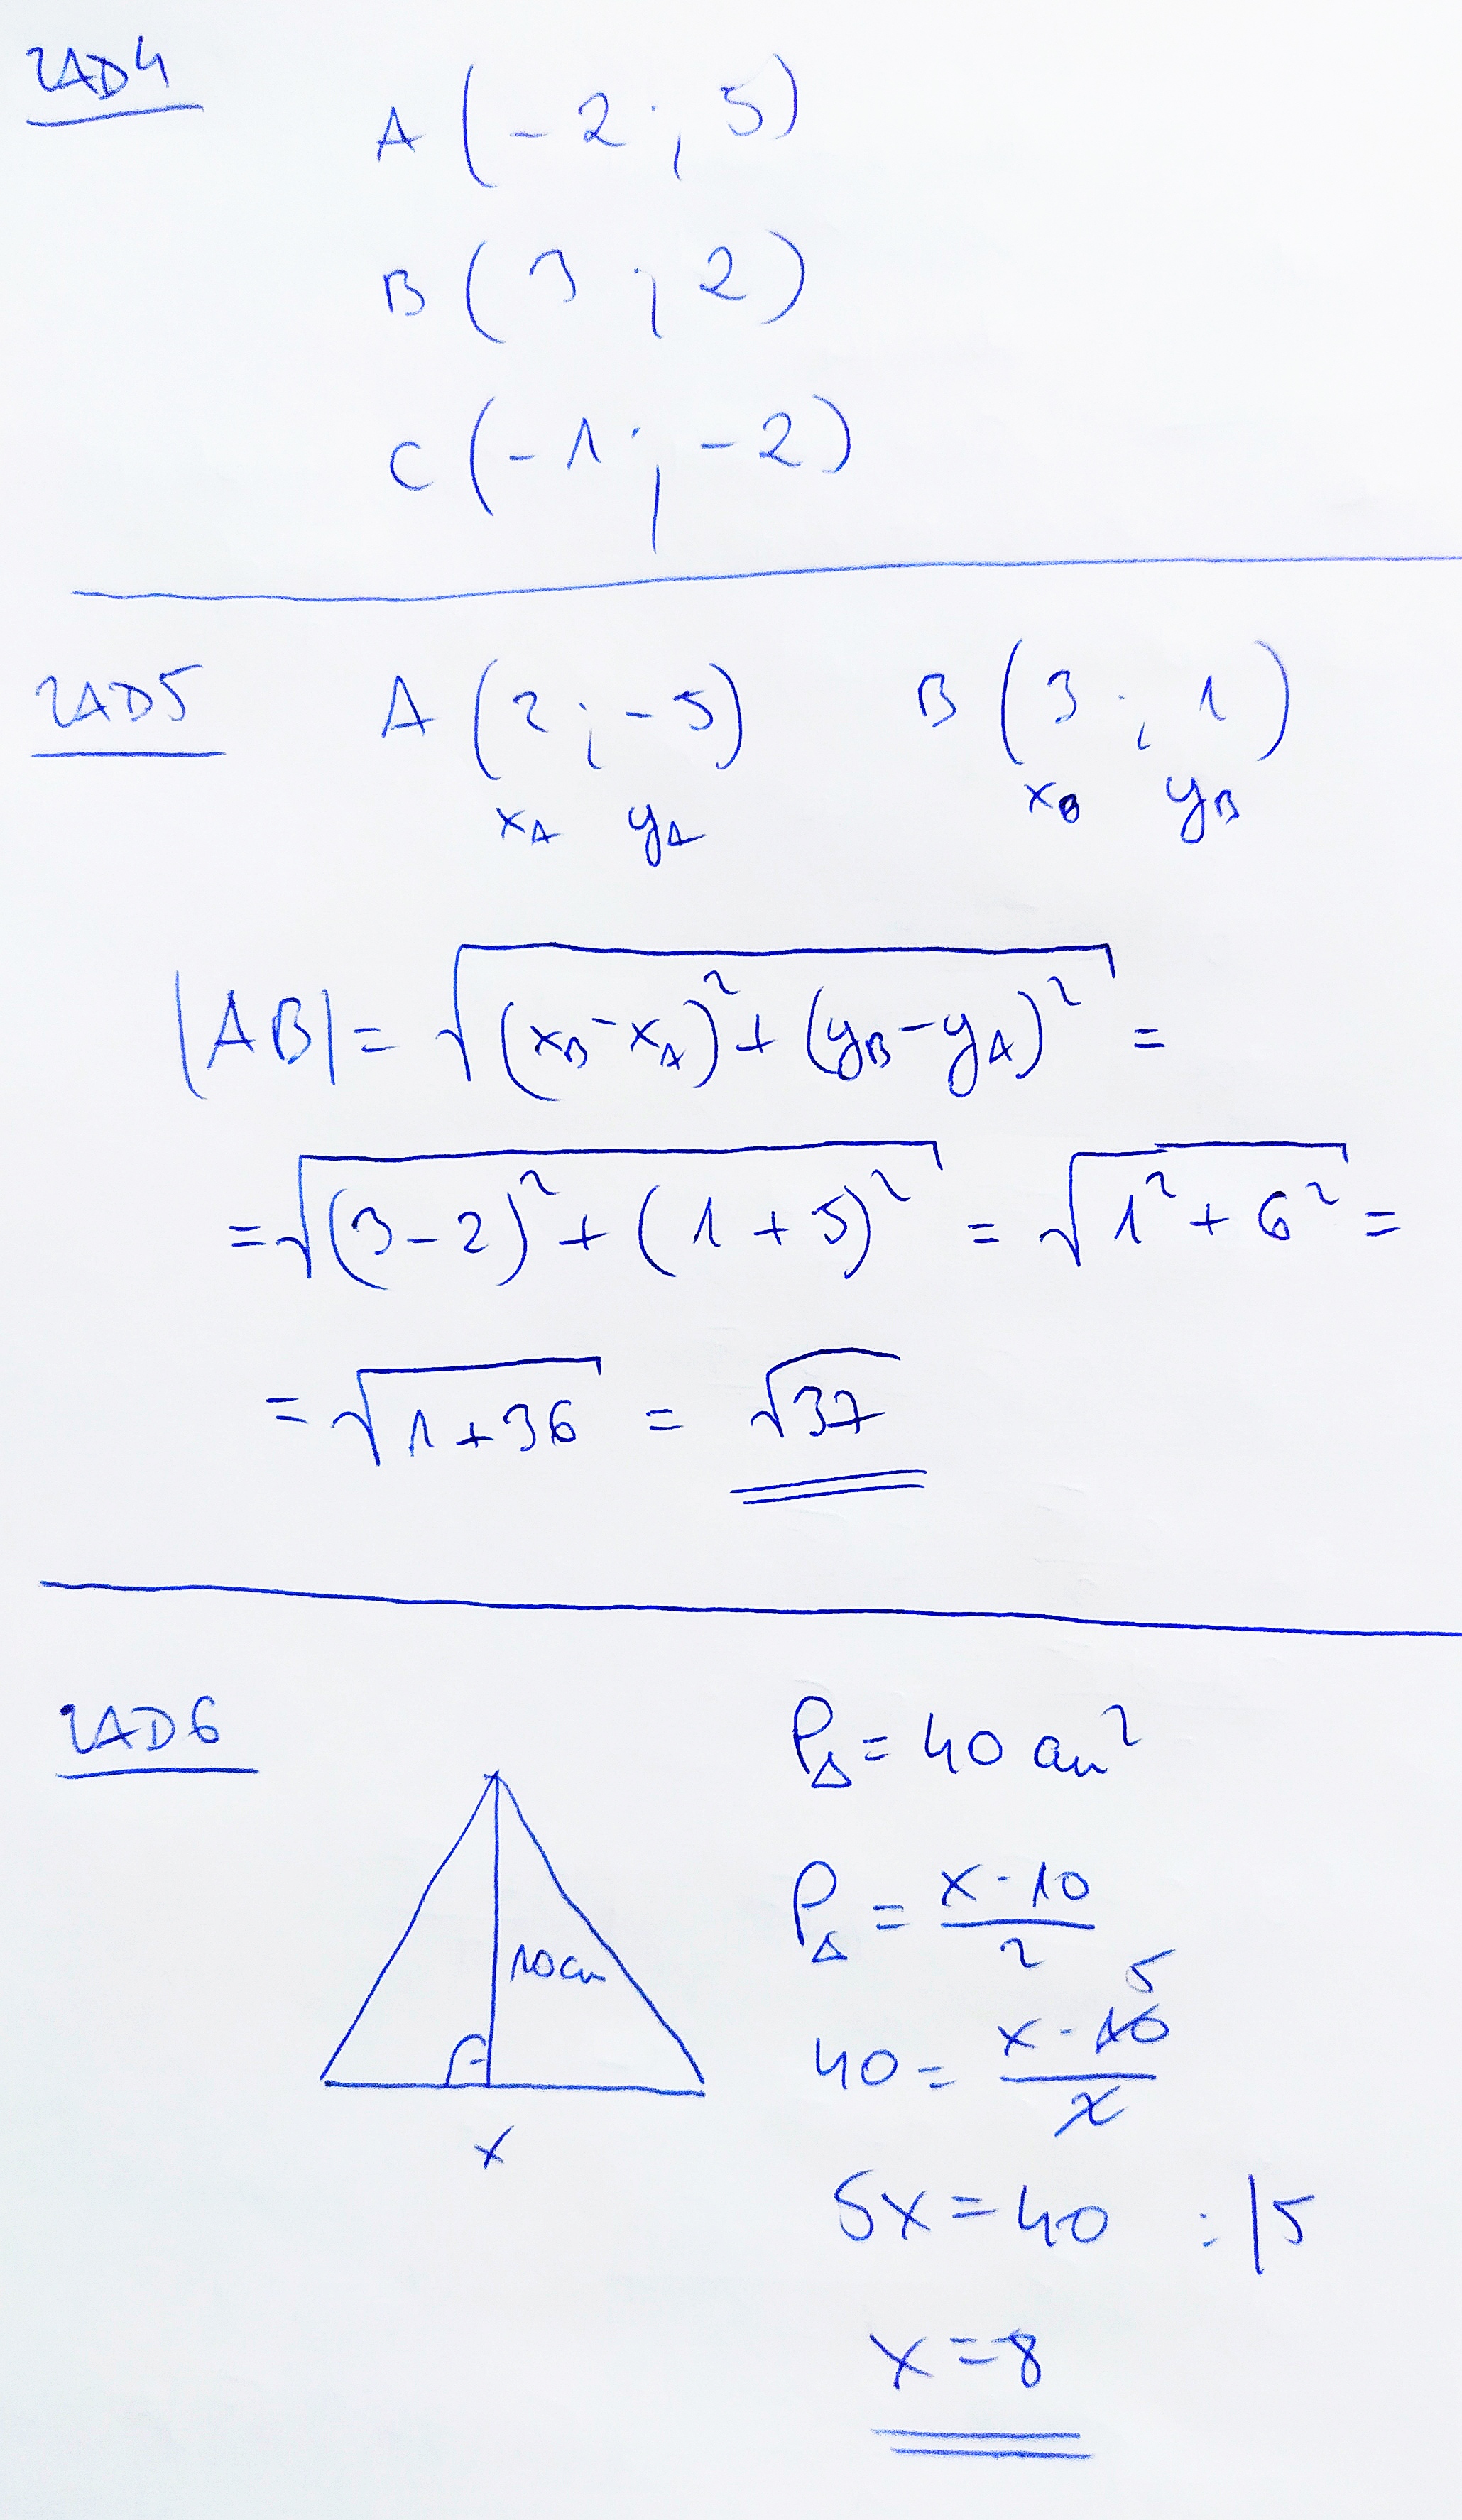 ZAD4
A (-2 ; 5)
B (3 ; 2)
C (-1 ; -2)
ZAD5 A (2 ; -5) B (3 ; 1)
xA yA xB yB
|AB| = √((xB-xA)² + (yB-yA)²) =
= √((3-2)² + (1+5)²) = √(1² + 6²) =
= √(1+36) = √37
ZAD6
P△ = 40 cm²
P△ = x·10/2
10cm
5
40 = x·10/2
x
5x = 40 :|5
x = 8